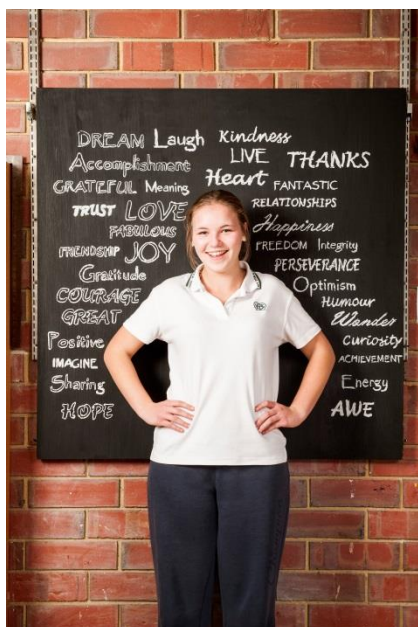 DREAM Laugh Kindness
LIVE THANKS
Accomplishment
Heart
GRATEFUL Meaning FANTASTIC
TRUST LOVE RELATIONSHIPS
FABULOUS Happiness
FRIENDSHIP JOY FREEDOM Integrity
Gratitude PERSEVERANCE
COURAGE Optimism
GREAT Humour
Wonder
Positive Curiosity
IMAGINE ACHIEVEMENT
Sharing Energy
HOPE AWE